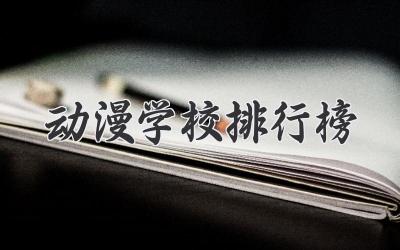 动漫学校排行榜